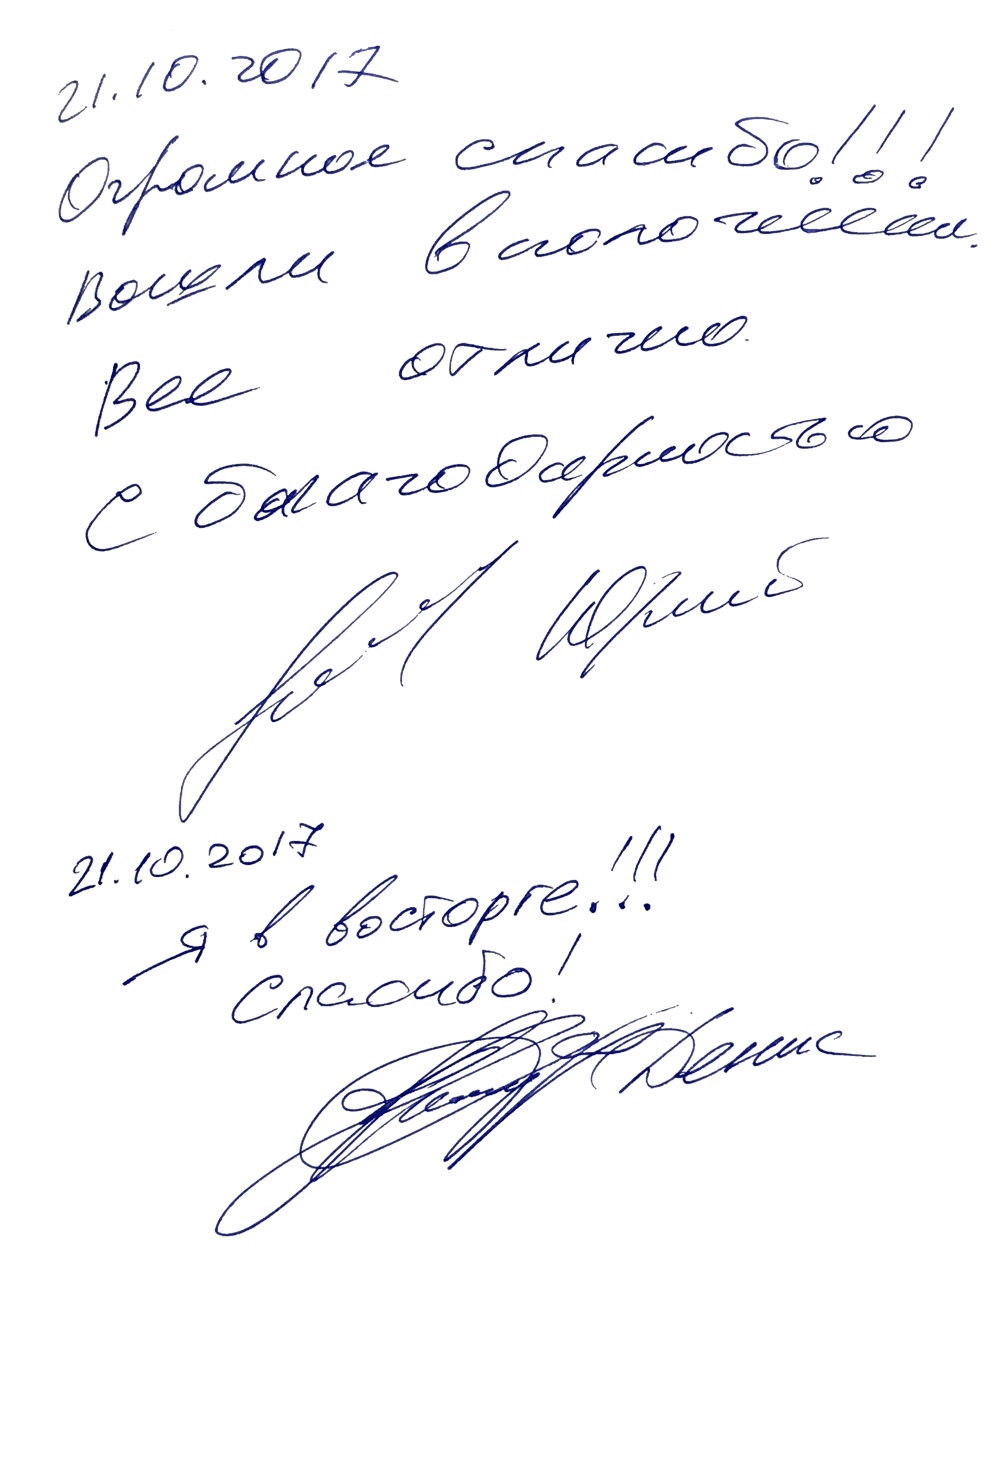 21.10.2017
Огромное спасибо!!!
Вошли в положение.
Все отлично.
С благодарностью
Юрий
21.10.2017
Я в восторге!!!
Спасибо!
Денис